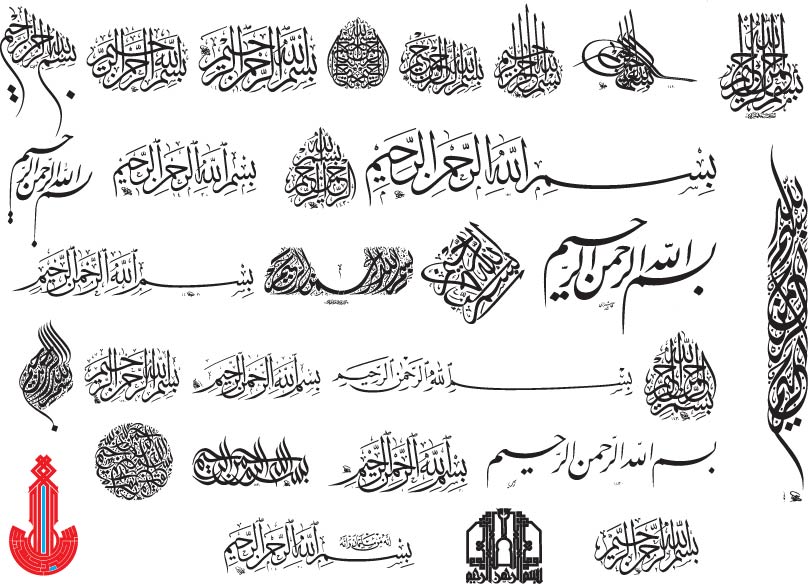 بسم الله الرحمن الرحيم
بسم الله الرحمن الرحيم
بسم الله الرحمن الرحيم
بسم الله الرحمن الرحيم
بسم الله الرحمن الرحيم
بسم الله الرحمن الرحيم
بسم الله الرحمن الرحيم
بسم الله الرحمن الرحيم
بسم الله الرحمن الرحيم
بسم الله الرحمن الرحيم
بسم الله الرحمن الرحيم
بسم الله الرحمن الرحيم
بسم الله الرحمن الرحيم
بسم الله الرحمن الرحيم
بسم الله الرحمن الرحيم
بسم الله الرحمن الرحيم
بسم الله الرحمن الرحيم
بسم الله الرحمن الرحيم
بسم الله الرحمن الرحيم
بسم الله الرحمن الرحيم
بسم الله الرحمن الرحيم
بسم الله الرحمن الرحيم
بسم الله الرحمن الرحيم
بسم الله الرحمن الرحيم
بسم الله الرحمن الرحيم
بسم الله الرحمن الرحيم
إنه من سليمان وإنه
بسم الله الرحمن الرحيم
بسم الله الرحمن الرحيم